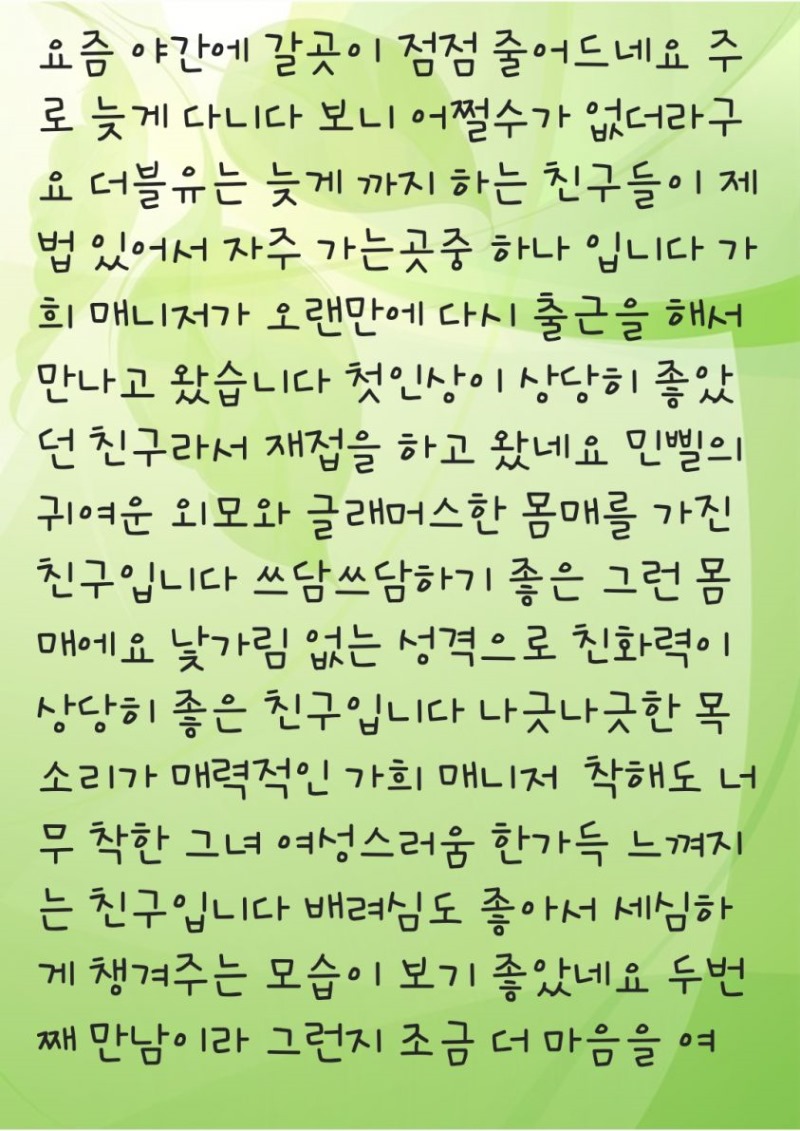 요즘 야간에 갈곳이 점점 줄어드네요 주
로 늦게 다니다 보니 어쩔수가 없더라구
요 더블유는 늦게 까지 하는 친구들이 제
법 있어서 자주 가는곳중 하나 입니다 가
희 매니저가 오랜만에 다시 출근을 해서
만나고 왔습니다 첫인상이 상당히 좋았
던 친구라서 재접을 하고 왔네요 민삘의
귀여운 외모와 글래머스한 몸매를 가진
친구입니다 쓰담쓰담하기 좋은 그런 몸
매에요 낯가림 없는 성격으로 친화력이
상당히 좋은 친구입니다 나긋나긋한 목
소리가 매력적인 가희 매니저 착해도 너
무 착한 그녀 여성스러움 한가득 느껴지
는 친구입니다 배려심도 좋아서 세심하
게 챙겨주는 모습이 보기 좋았네요 두번
째 만남이라 그런지 조금 더 마음을 여